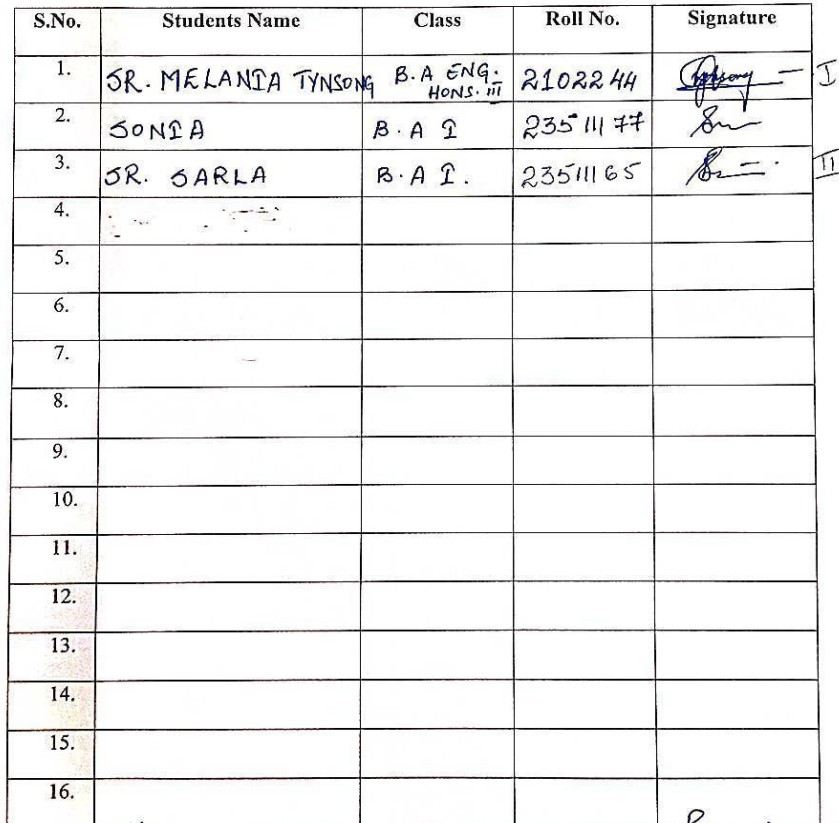 S.No. Students Name Class Roll No. Signature
1. SR. MELANIA TYNSONG B.A ENG. HONS. III 2102244 I
2. SONIA B.A I 23511177
3. SR. SARLA B.A I. 23511165 II
4.
5.
6.
7.
8.
9.
10.
11.
12.
13.
14.
15.
16.